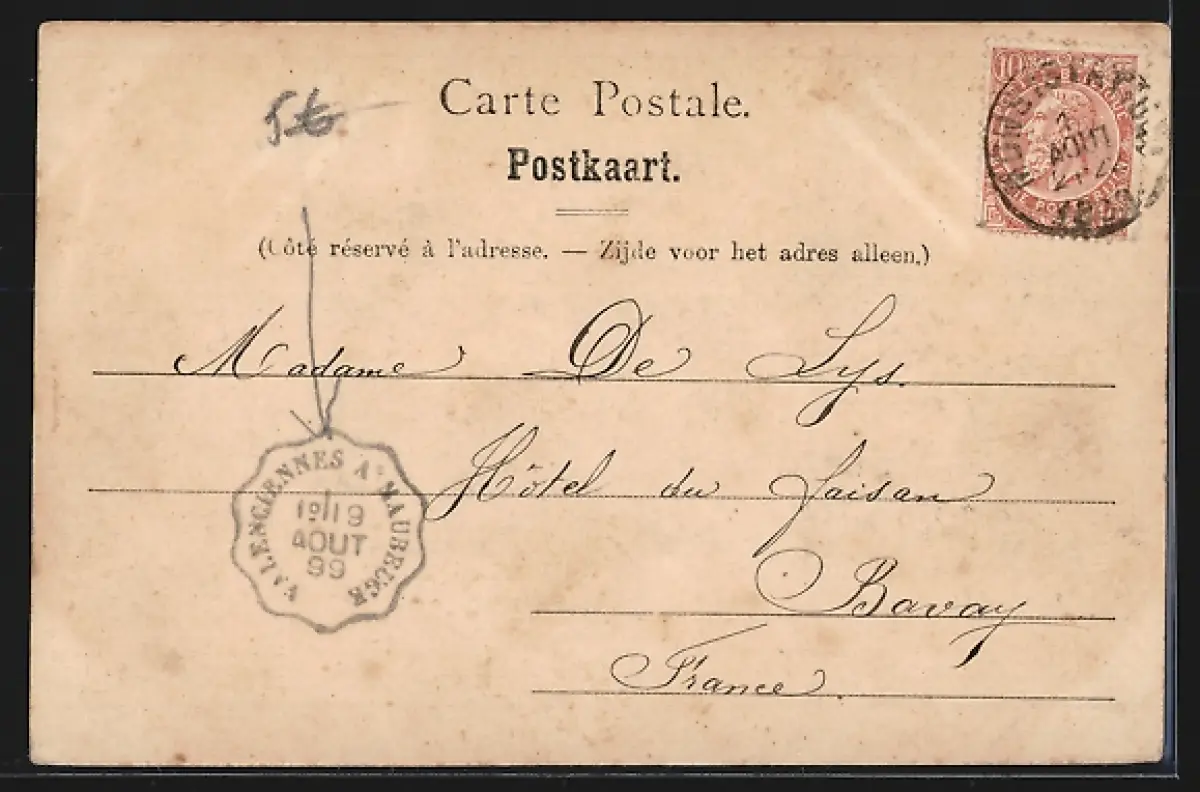 Carte Postale.
Postkaart.
(Côté réservé à l'adresse. — Zijde voor het adres alleen.)
10
AOUT
Madame De Lys.
Hôtel du faisan
Bavay
France.
VALENCIENNES A MAUBEUGE
19
AOUT
99